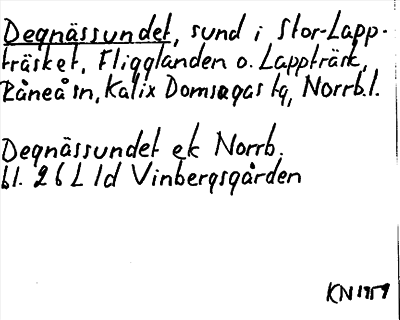 Degnässundet, sund i Stor-Lapp-
träsket, Fligglanden o. Lappträsk,
Råneå sn, Kalix Domsagas tg, Norrb.l.
Degnässundet ek Norrb.
bl. 26 L ld Vinbergsgården
KN 1959